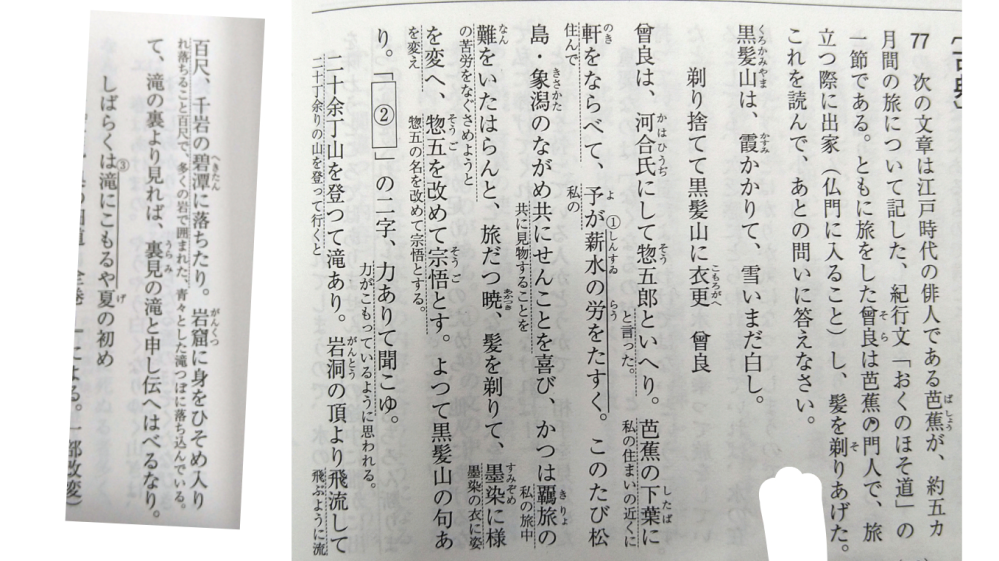 77 次の文章は江戸時代の俳人である芭蕉が、約五カ
ばしょう
月間の旅について記した、紀行文「おくのほそ道」の
一節である。ともに旅をした曾良は芭蕉の門人で、旅
そら
立つ際に出家(仏門に入ること)し、髪を剃りあげた。
そ
これを読んで、あとの問いに答えなさい。
黒髪山は、霞かかりて、雪いまだ白し。
くろかみやま かすみ
剃り捨てて黒髪山に衣更 曾良
ころもがへ
曾良は、河合氏にして惣五郎といへり。芭蕉の下葉に
かはひうぢ そう したば
と言った。 私の住まいの近くに
軒をならべて、予が薪水の労をたすく。このたび松
のき よ ①しんすゐ らう
住んで 私の
島・象潟のながめ共にせんことを喜び、かつは羈旅の
きさかた きりょ
共に見物することを 私の旅中
難をいたはらんと、旅だつ暁、髪を剃りて、墨染に様
なん あかつき すみぞめ
の苦労をなぐさめようと 墨染の衣に姿
を変へ、惣五を改めて宗悟とす。よつて黒髪山の句あ
そうご そうご
を変え 惣五の名を改めて宗悟とする。
り。「②」の二字、力ありて聞こゆ。
力がこもっているように思われる。
二十余丁山を登つて滝あり。岩洞の頂より飛流して
がんとう
二十丁余りの山を登って行くと 飛ぶように流
百尺、千岩の碧潭に落ちたり。岩窟に身をひそめ入り
へきたん がんくつ
れ落ちること百尺で、多くの岩で囲まれた、青々とした滝つぼに落ち込んでいる。
て、滝の裏より見れば、裏見の滝と申し伝へはべるなり。
うらみ
しばらくは滝にこもるや夏の初め
③ げ